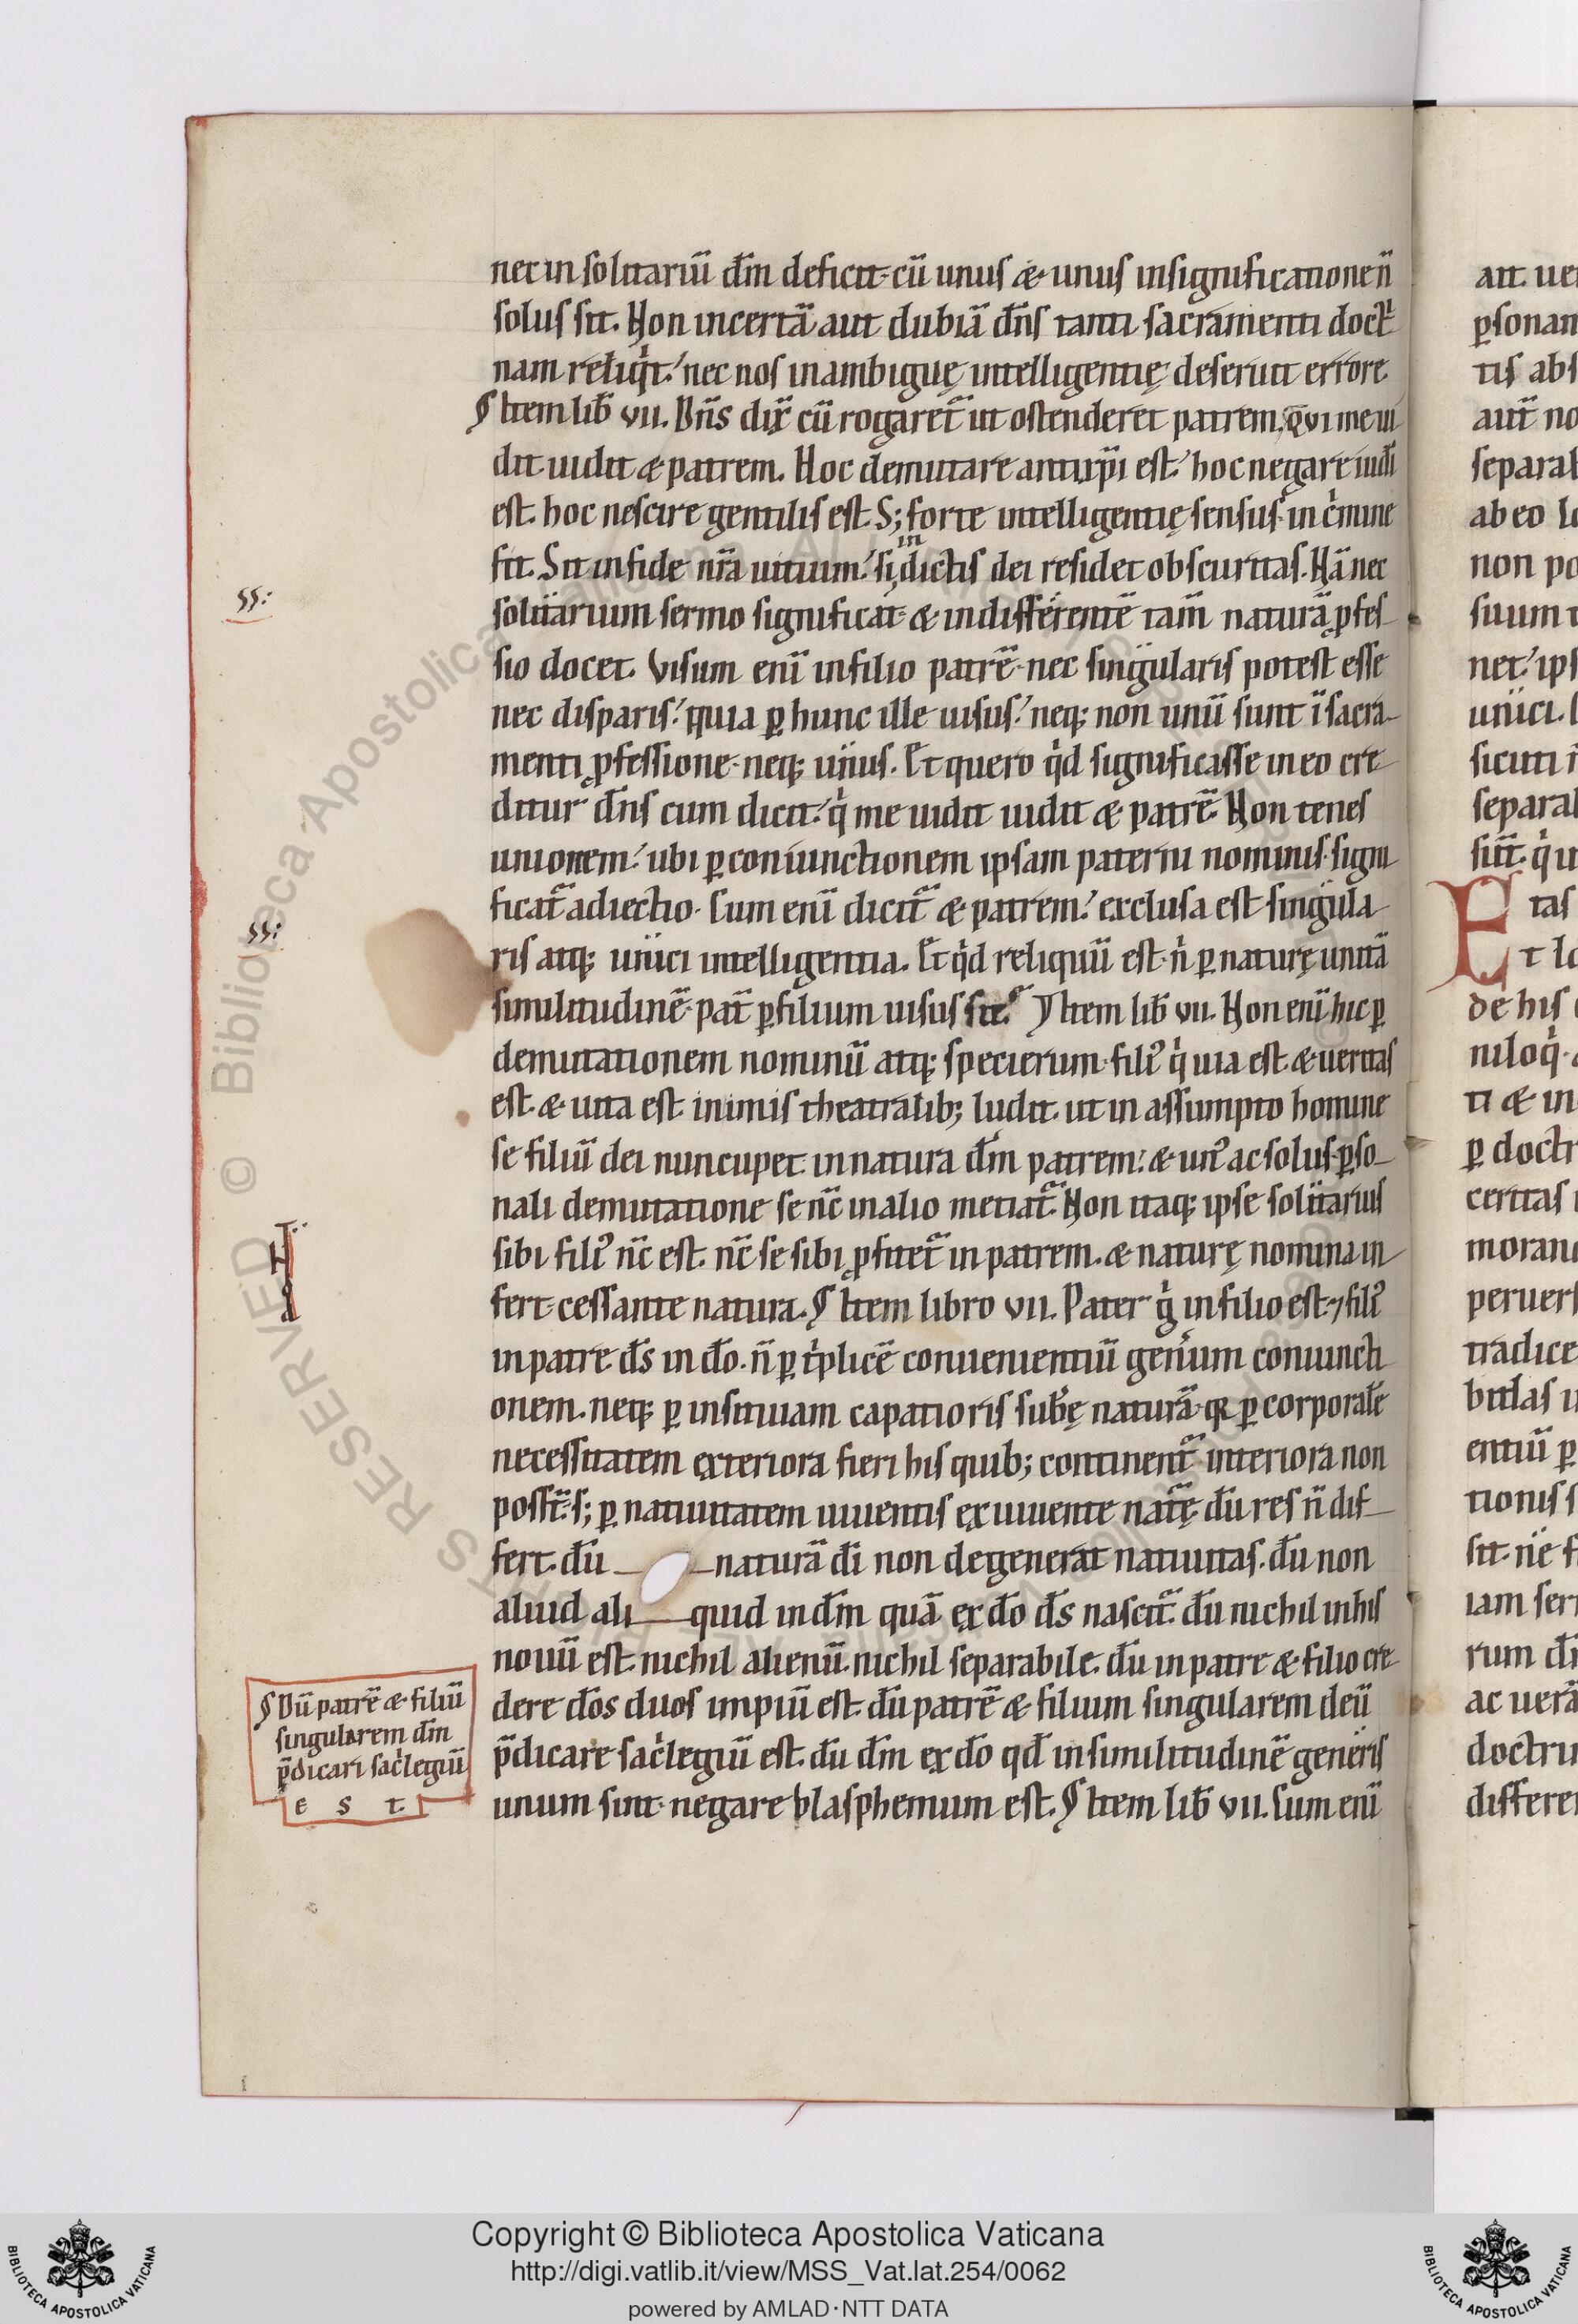 nec in solitariū dm̄ deficit· cū unus & unus insignificatione n̄
solus sit. Non incertā aut dubiā dn̄s tanti sacramenti doct̄
nam reliqͥt. nec nos inambiguę intelligentię deseruit errore
¶ Item lib̄ vii. Dn̄s dix̄ cū rogaret᷑ ut ostenderet patrem. qvi me ui
dit uidit & patrem. Hoc demutare antixp̄i est. hoc negare iud̄i
est. hoc nescire gentilis est. S; forte intelligentię sensus in cͥmine
fit. Sit in fide nr̄a uitium. si in dictis dei residet obscuritas. Nā nec
solitarium sermo significat· & indifferentē tam̄ naturā ꝓfes
sio docet. Visum eni̅ in filio patrē· nec singularis potest esse
nec disparis. quia ꝑ hunc ille uisus. neq; non unū sunt ī sacra
menti ꝓfessione· neq; unus. Et quero qͥd significasse in eo cre
ditur dn̄s cum dicit. qͥ me uidit uidit & patrē. Non tenes
unionem. ubi ꝑ coniunctionem ipsam paterni nominis signi
ficat᷑ adiectio. Cum eni̅ dicit᷑ & patrem. exclusa est singula
ris atq; unici intelligentia. Et qͥd reliquū est n̄ ꝑ naturę unitā
similitudinē· pat̄ ꝑ filium uisus sit. ¶ Item lib̄ vii. Non eni̅ hic ꝑ
demutationem nominū atq; specierum· fili᷒ qͥ uia est & ueritas
est & uita est inimis theatralib; ludit. ut in assumpto homine
se filiū dei nuncupet in natura dm̄ patrem. & un᷒ ac solus ꝑso
nali demutatione se nc̄ in alio metiat᷑. Non itaq; ipse solitarius
sibi fili᷒ nc̄ est. nc̄ se sibi ꝓfitet᷑ in patrem. & naturę nomina in
fert cessante natura. ¶ Item libro vii. Pater gͥ in filio est· ⁊ fili᷒
in patre ds̄ in dō. n̄ ꝑ tͥplicē conuenientiū gen̄um coniuncti
onem. neq; ꝑ insitiuam capatioris sub̄ę naturā· qꝛ ꝑ corporalē
necessitatem exteriora fieri his quib; continent᷑ interiora non
posst̄· s; ꝑ natiuitatem uiuentis ex uiuente nat̄ę dū res n̄ dif
fert. dū naturā dī non degenerat natiuitas. dū non
aliud ali quid in dm̄ quā ex dō ds̄ nascit᷑. dū nichil in his
nouū est. nichil alienū. nichil separabile. dū in patre & filio cre
dere dōs duos impiū est. dū patrē & filium singularem deū
p̄dicare sacͥlegiū est. dū dm̄ ex dō qd̄ in similitudinē generis
unum sint· negare blasphemum est. ¶ Item lib̄ vii. Cum eni̅
ss:
ss:
¶ Dū patrē & filiū
singularem dm̄
p̄dicari sacͥlegiū
E S T.
ait. ue
ꝑsonam
tis abs
aut̄ no
separab
ab eo
non po
suum
net. ips
unici.
sicuti
separab
tas
t
de his
niloqͥ·
ti & in
ꝑ doctr
certas
morand
peruers
tradice
bitlas
entiū ꝑ
tionis s
iam ser
rum dī
ac uerā
doctri
differe
Copyright © Biblioteca Apostolica Vaticana
http://digi.vatlib.it/view/MSS_Vat.lat.254/0062
powered by AMLAD·NTT DATA
BIBLIOTECA APOSTOLICA VATICANA
BIBLIOTECA APOSTOLICA VATICANA